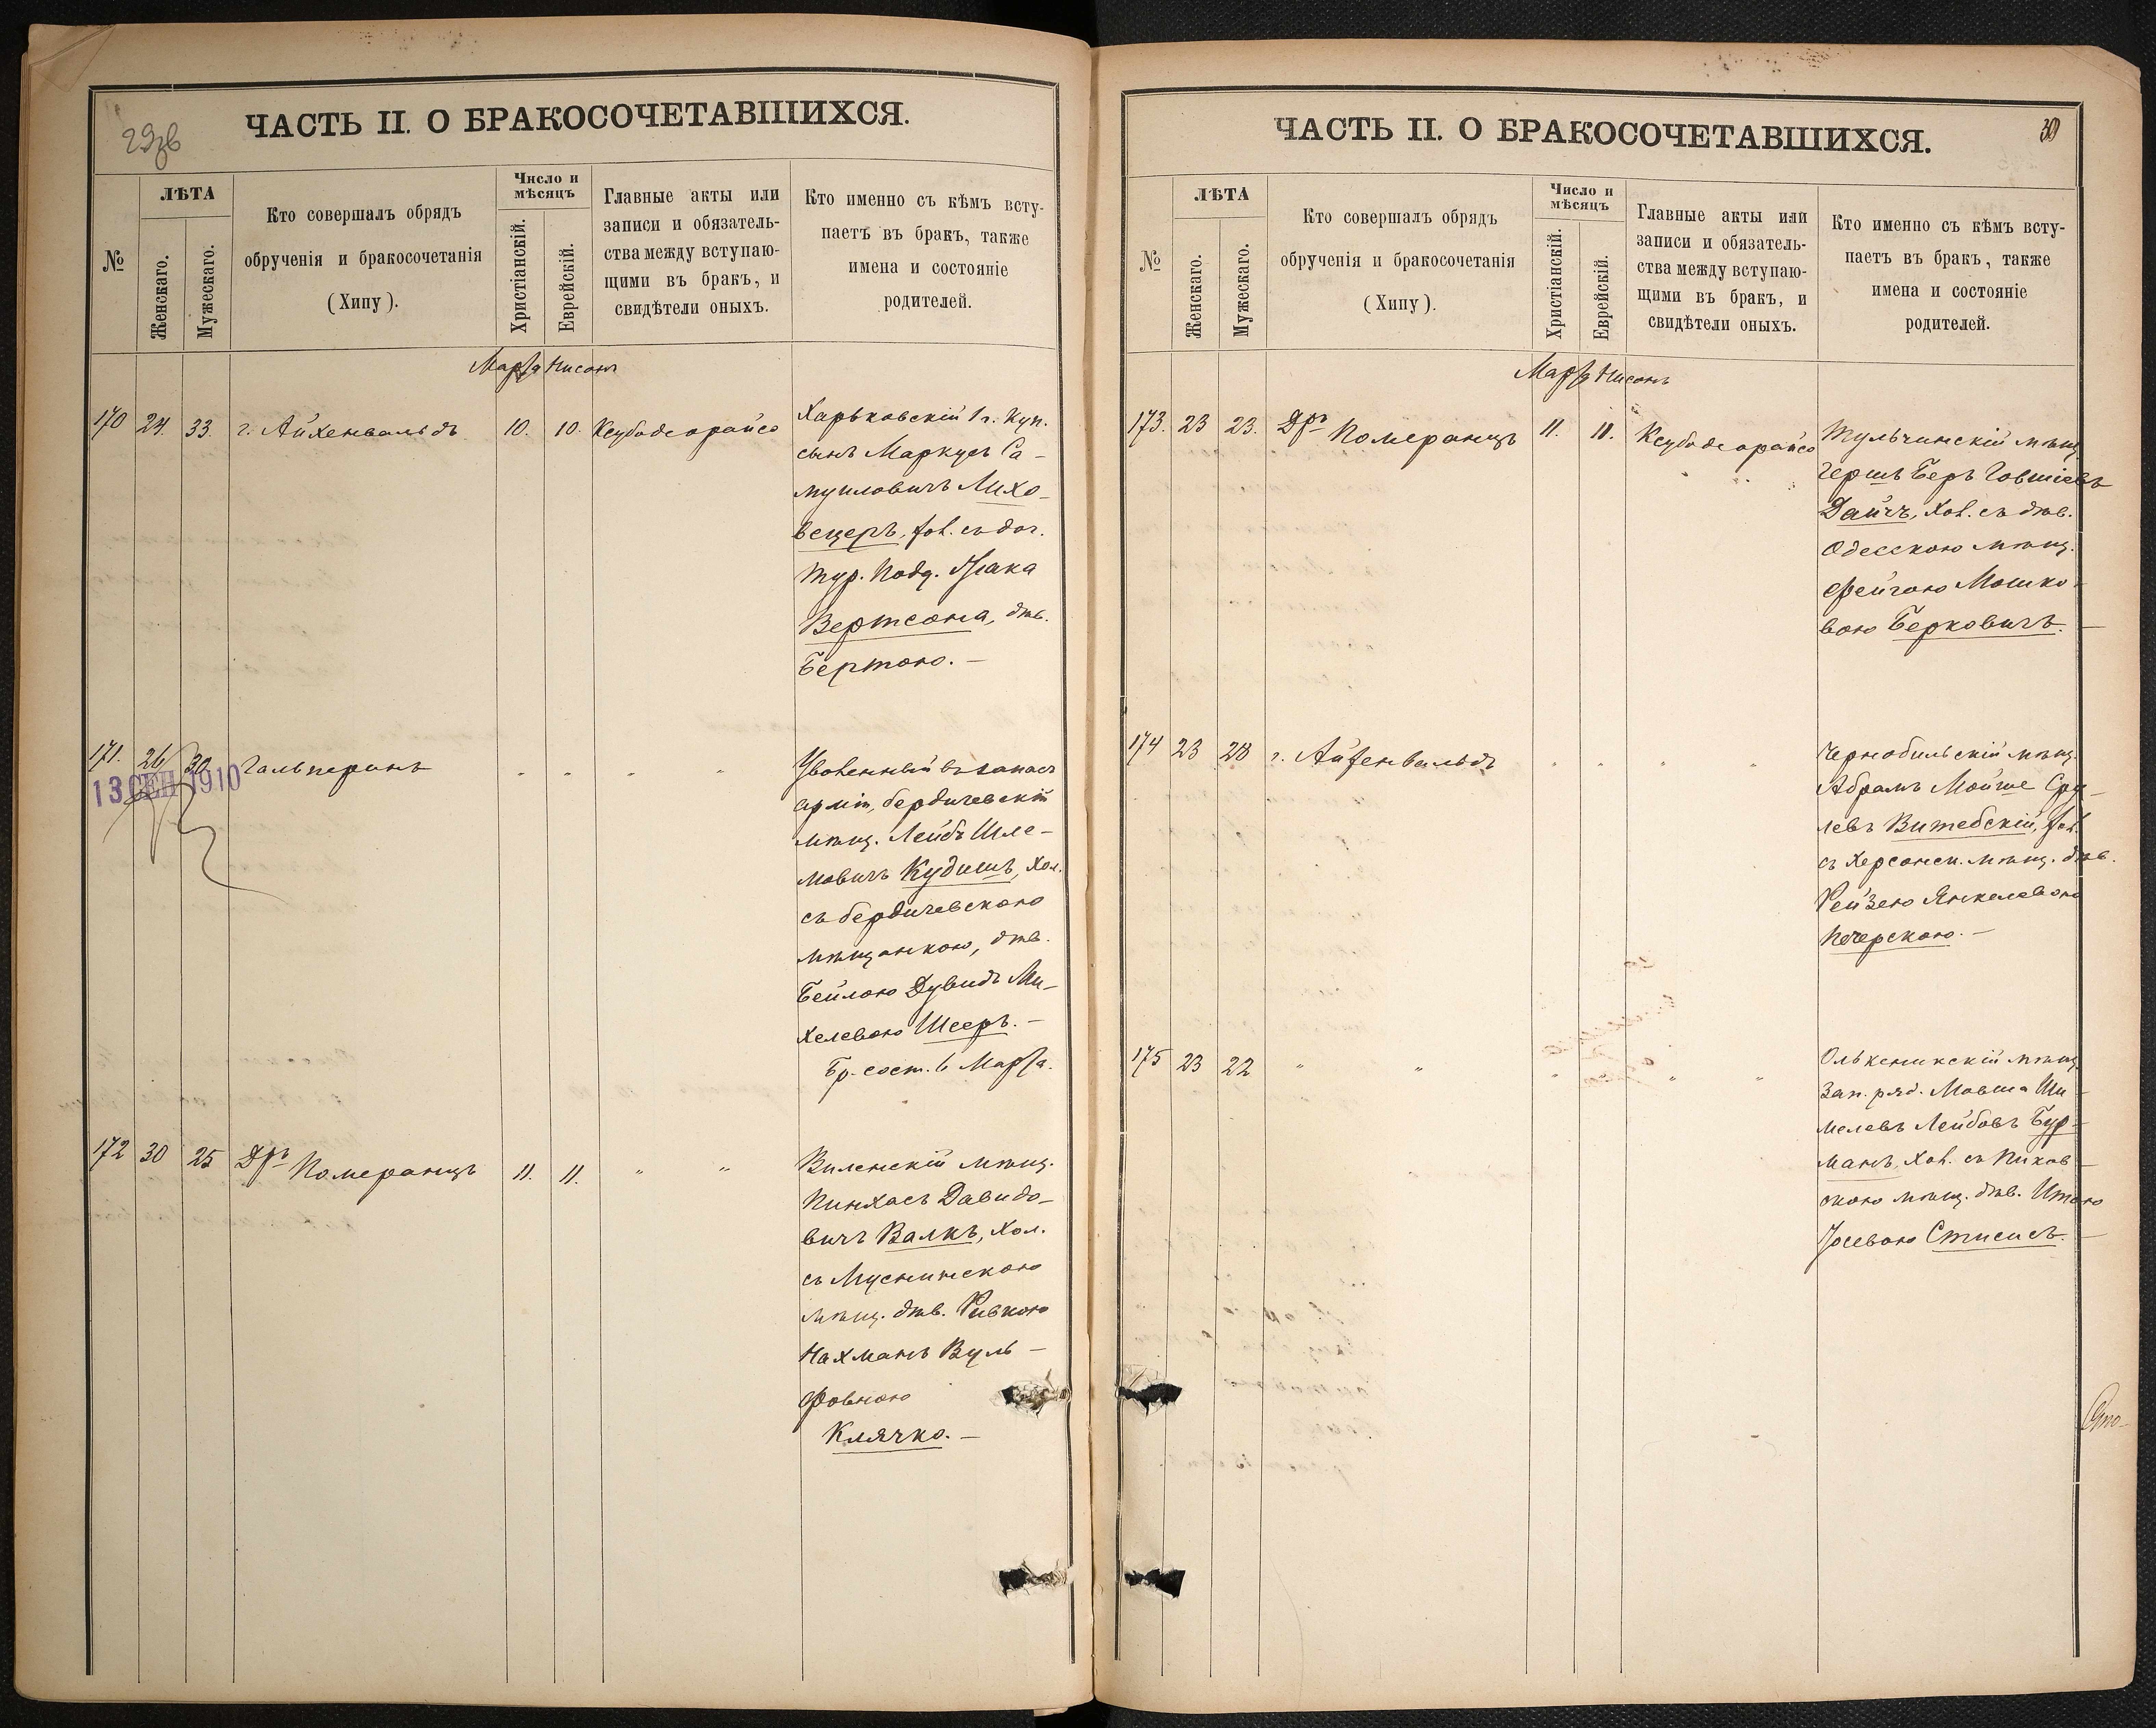 29об
ЧАСТЬ II. О БРАКОСОЧЕТАВШИХСЯ.
№
ЛѢТА
Женскаго.
Мужескаго.
Кто совершалъ обрядъ
обрученія и бракосочетанія
(Хипу).
Число и
мѣсяцъ
Христіанскій.
Еврейскій.
Главные акты или
записи и обязатель-
ства между вступаю-
щими въ бракъ, и
свидѣтели оныхъ.
Кто именно съ кѣмъ всту-
паетъ въ бракъ, также
имена и состояніе
родителей.
Марта Нисонъ
170 24. 33. г. Айхенвальдъ 10. 10. Ксубодеорайсо
Харьковскій 1 г. Куп.
сынъ Маркусъ Са-
муиловичъ Лихо-
вецеръ, хол. съ доч.
тур. подд.
Вертсона, дѣв.
Бертою. —
171. 26 30 Гальперинъ " " " "
13 СЕН 1910
Уволенный въ запасъ
арміи, бердичевскій
мѣщ. Лейбъ Шле-
мовичъ Кудишъ, хол.
съ бердичевскою
мѣщанкою, дѣв.
Бейлою Дувидъ Ми-
хелевою Шееръ. —
Бр. сост. 6 Марта.
172 30 25 Дръ Померанцъ 11. 11. " "
Виленскій мѣщ.
Пинхасъ Давидо-
вичъ Валкъ, хол.
съ Мусникскою
мѣщ. дѣв. Ривкою
Нахманъ Вуль-
фовною
Клячко. —
ЧАСТЬ II. О БРАКОСОЧЕТАВШИХСЯ.
30
№
ЛѢТА
Женскаго.
Мужескаго.
Кто совершалъ обрядъ
обрученія и бракосочетанія
(Хипу).
Число и
мѣсяцъ
Христіанскій.
Еврейскій.
Главные акты или
записи и обязатель-
ства между вступаю-
щими въ бракъ, и
свидѣтели оныхъ.
Кто именно съ кѣмъ всту-
паетъ въ бракъ, также
имена и состояніе
родителей.
Марта Нисонъ
173. 23 23. Дръ Померанцъ 11. 11. Ксубодеорайсо
Тульчинскій мѣщ.
Гершъ Беръ Говшіевъ
Дайчъ, хол. съ дѣв.
Одесскою мѣщ.
Фейгою Мошко-
вою Берковичъ. —
174 23 28 г. Айхенвальдъ " " " "
Чернобильскій мѣщ.
Абрамъ Мойше Сру-
левъ Витебскій, хол.
съ Херсонск. мѣщ. дѣв.
Рейзею Янкелевою
Печерскою. —
175 23 22 " " " " " "
Олькеникскій мѣщ.
Зап. ряд. Мовша Ши-
мелевъ Лейбовъ Бур-
манъ, хол. съ Пиков-
скою мѣщ. дѣв. Итою
Іосевою Стисисъ. —